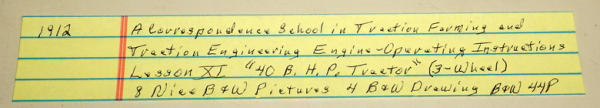 1912 A Correspondence School in Traction Farming and
Traction Engineering Engine-Operating Instructions
Lesson XI "40 B. H. P. Tractor" (3-Wheel)
8 Nice B&W Pictures 4 B&W Drawing B&W 44P